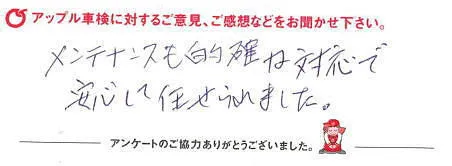 アップル車検に対するご意見、ご感想などをお聞かせ下さい。
メンテナンスも的確な対応で
安心して任せられました。
アンケートのご協力ありがとうございました。